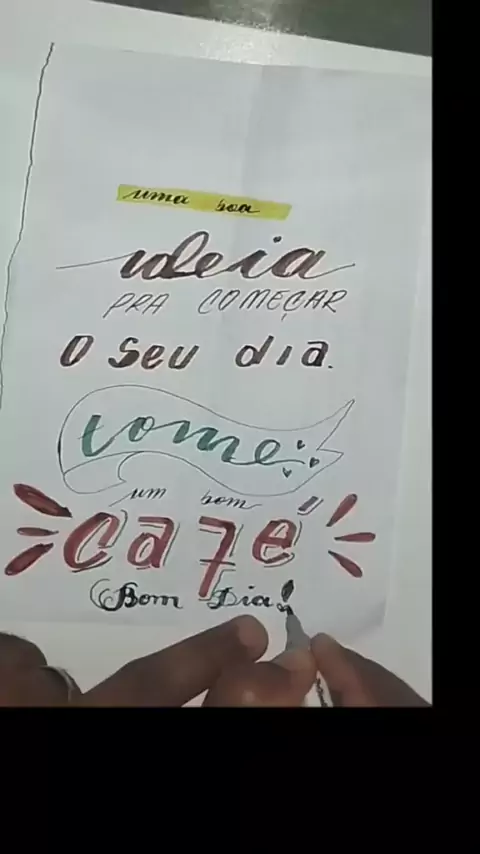 uma boa
ideia
PRA COMEÇAR
o seu dia.
tome:
um bom
café
Bom Dia!